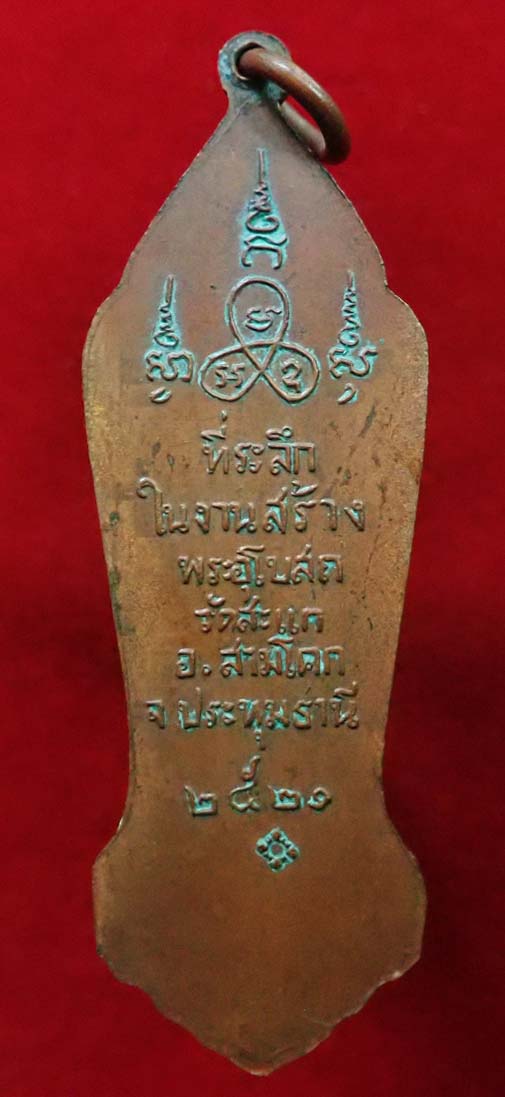 ที่ระลึก
ในงานสร้าง
พระอุโบสถ
วัดสะแก
อ.สามโคก
จ.ประทุมธานี
๒๕๒๑